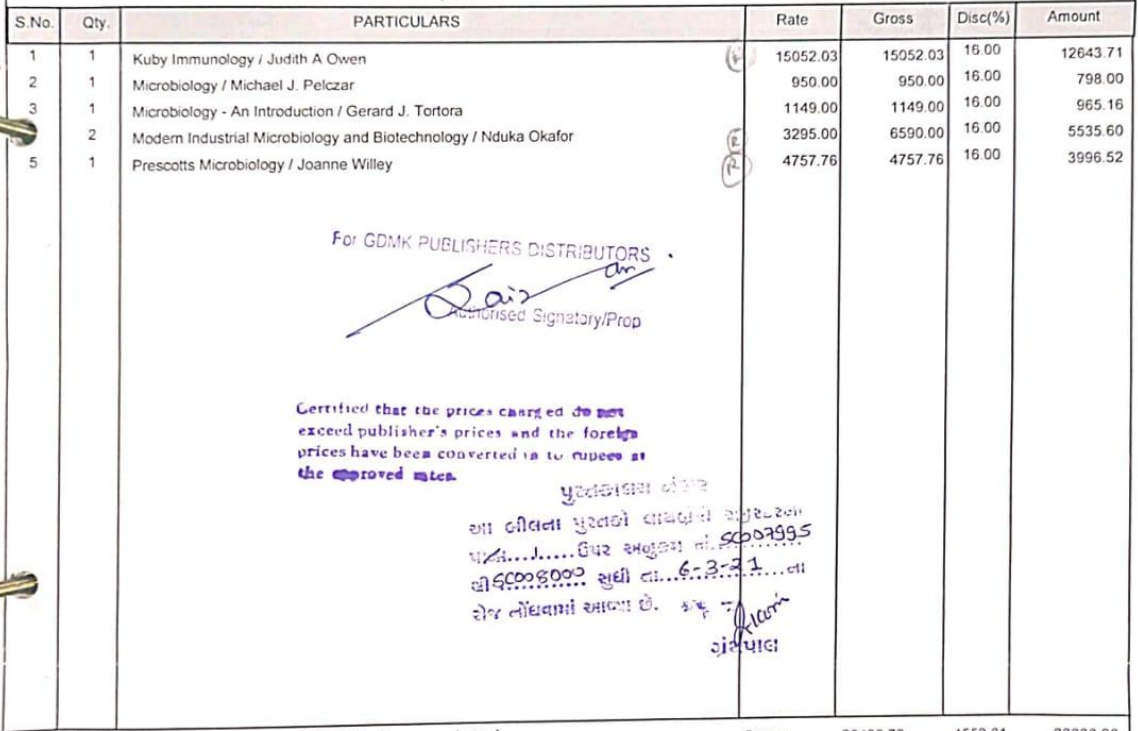 S.No. Qty. PARTICULARS Rate Gross Disc(%) Amount
1 1 Kuby Immunology / Judith A Owen 15052.03 15052.03 16.00 12643.71
2 1 Microbiology / Michael J. Pelczar 950.00 950.00 16.00 798.00
3 1 Microbiology - An Introduction / Gerard J. Tortora 1149.00 1149.00 16.00 965.16
2 Modern Industrial Microbiology and Biotechnology / Nduka Okafor 3295.00 6590.00 16.00 5535.60
5 1 Prescotts Microbiology / Joanne Willey 4757.76 4757.76 16.00 3996.52
For GDMK PUBLISHERS DISTRIBUTORS
Authorised Signatory/Prop
Certified that the prices charged do not
exceed publisher's prices and the foreign
prices have been converted in to rupees at
the approved rates.
પુસ્તકાલય નંબર
આ બીલના પુસ્તકો લાયબ્રેરી રજીસ્ટરના
પાના.... 1 .....ઉપર અનુક્રમ નં. SC007995
થી SC008000 સુધી તા...6-3-21....ના
રોજ નોંધવામાં આવ્યા છે.
ગ્રંથપાલ